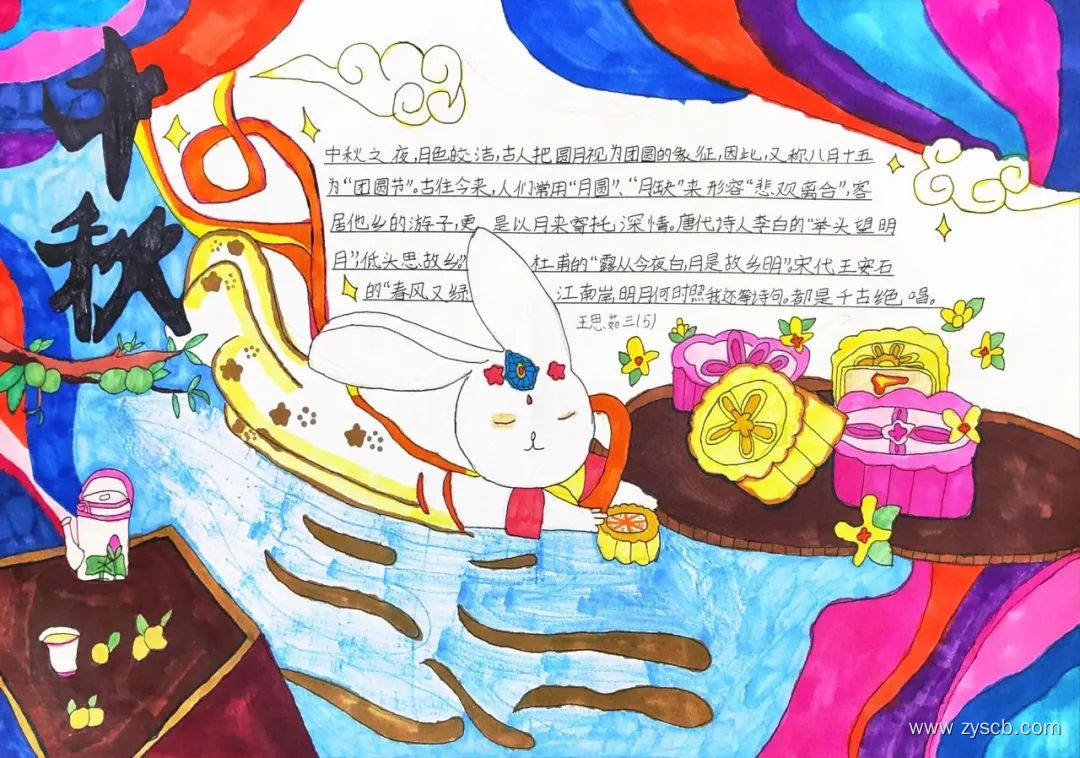 中秋
中秋之夜,月色皎洁,古人把圆月视为团圆的象征,因此,又称八月十五
为“团圆节”。古往今来,人们常用“月圆”、“月缺”来形容“悲观离合”,客
居他乡的游子,更是以月来寄托深情。唐代诗人李白的“举头望明
月”,低头思故乡。杜甫的“露从今夜白,月是故乡明”。宋代王安石
的“春风又绿江南岸,明月何时照我还等诗句。都是千古绝唱。
王思茹三(5)
www.zyscb.com